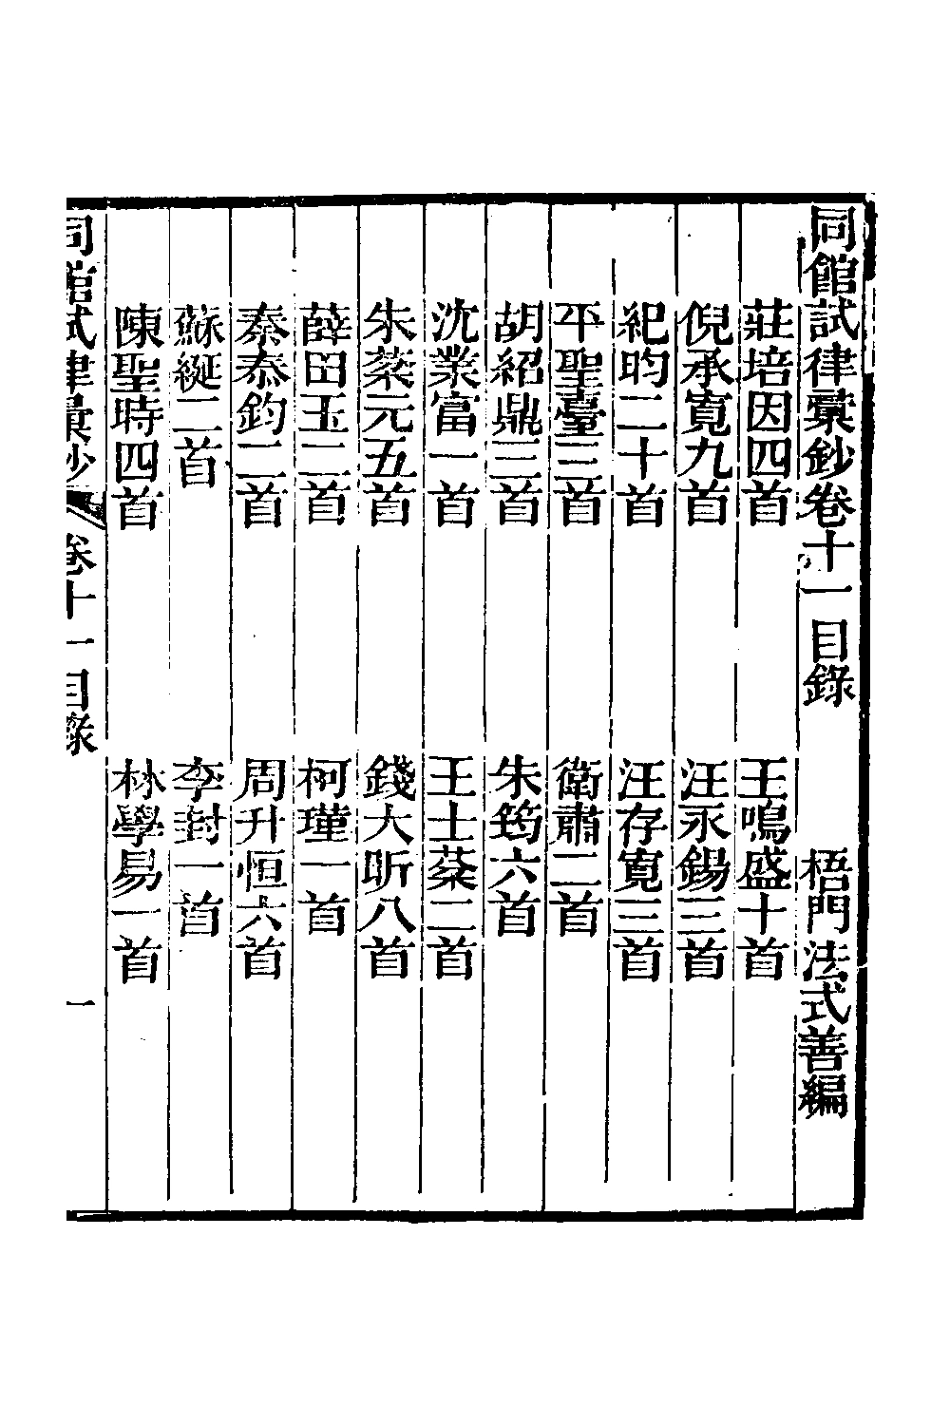 同館試律彚鈔卷十一目錄　梧門法式善編
莊培因四首　王鳴盛十首
倪承寬九首　汪永錫三首
紀昀二十首　汪存寬三首
平聖臺三首　衛肅二首
胡紹鼎三首　朱筠六首
沈業富一首　王士棻二首
朱棻元五首　錢大昕八首
薛田玉二首　柯瑾一首
秦泰鈞二首　周升恒六首
蘇綎二首　李封一首
陳聖時四首　林學易一首
同館試律彚鈔　卷十一目錄　一